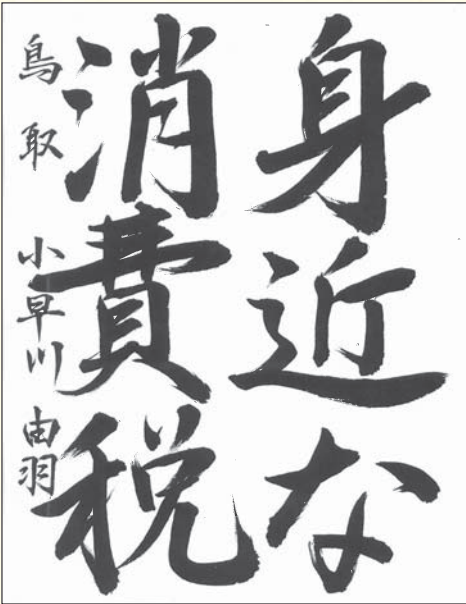 身近な
消費税
鳥取 小早川 由羽